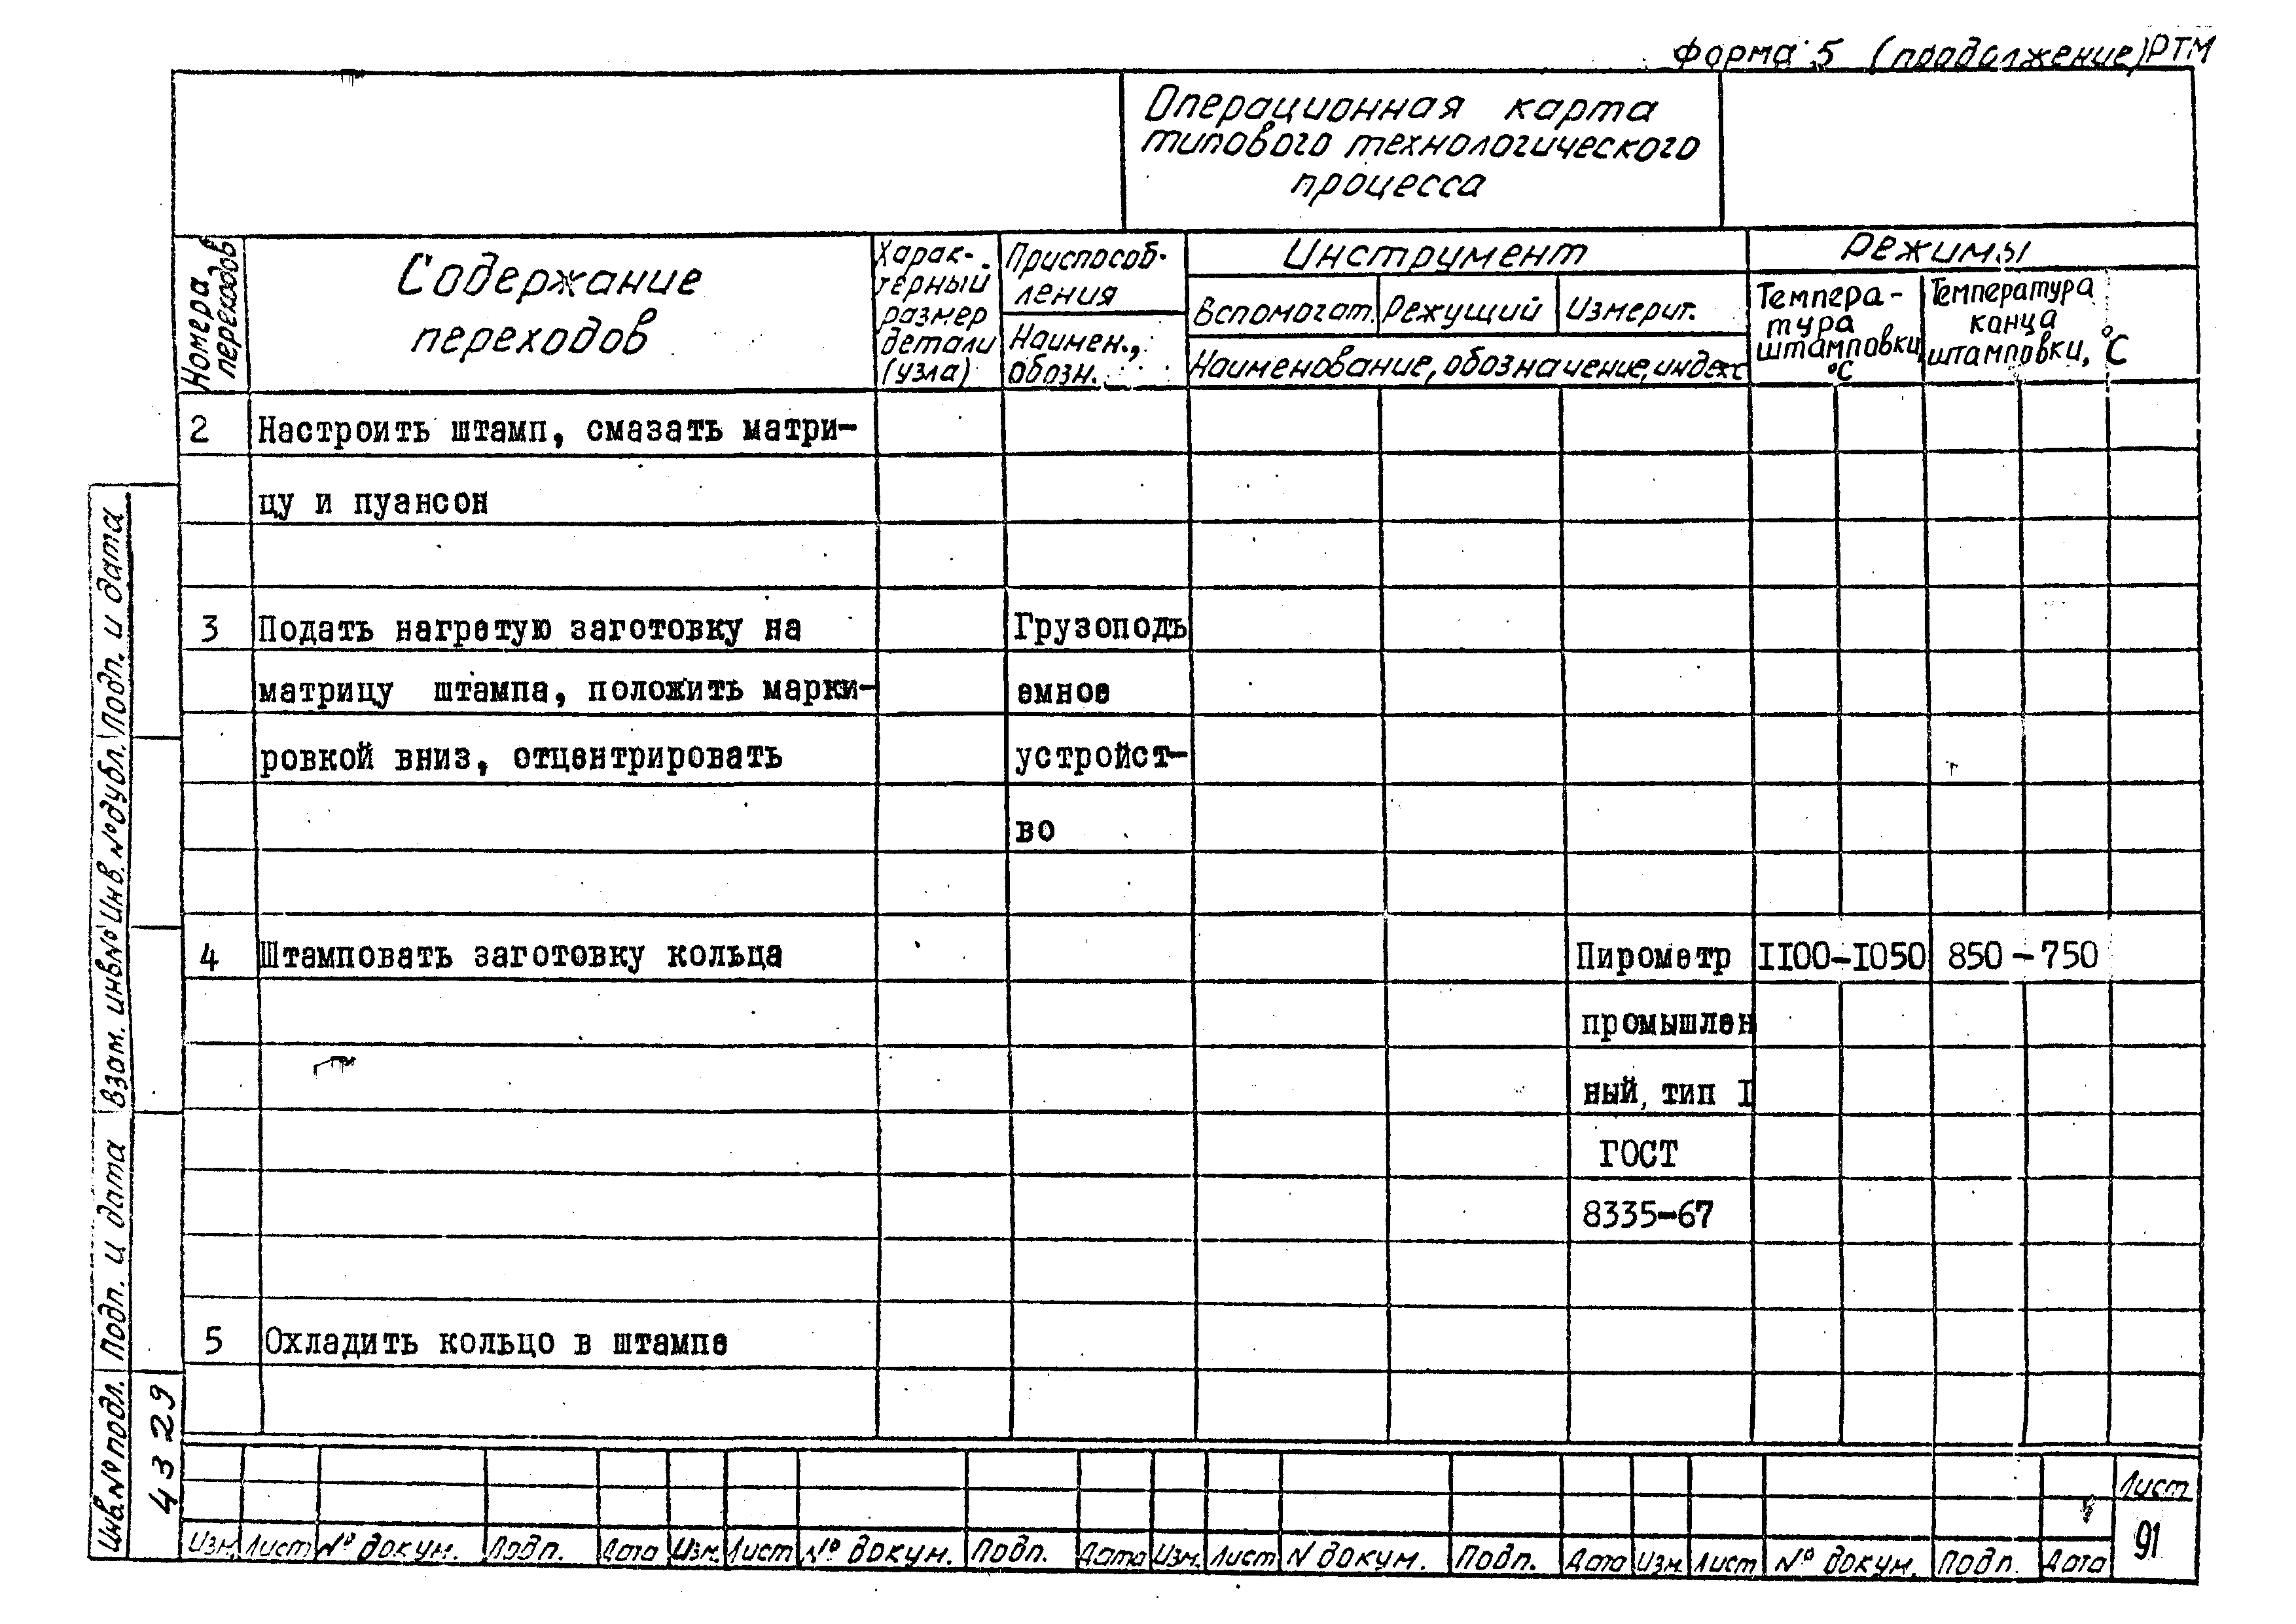 Форма 5 (продолжение) РТМ
Операционная карта
типового технологического
процесса
Номера
переходов
Содержание
переходов
Харак-
терный
размер
детали
(узла)
Приспособ-
ления
Наимен.,
обозн.
Инструмент
Вспомогат. Режущий Измерит.
Наименование, обозначение, индекс
Режимы
Темпера-
тура
штамповки,
°С
Температура
конца
штамповки, °С
2 Настроить штамп, смазать матри-
цу и пуансон
3 Подать нагретую заготовку на Грузоподъ
матрицу штампа, положить марки- емное
ровкой вниз, отцентрировать устройст-
во
4 Штамповать заготовку кольца Пирометр II00-I050 850-750
промышлен
ный, тип I
ГОСТ
8335-67
5 Охладить кольцо в штампе
Подп. и дата
Инв. № дубл.
Взам. инв. №
Подп. и дата
Инв. № подл.
4329
Изм. Лист № докум. Подп. Дата Изм. Лист № докум. Подп. Дата Изм. Лист N докум. Подп. Дата Изм. Лист № докум. Подп. Дата
Лист
91